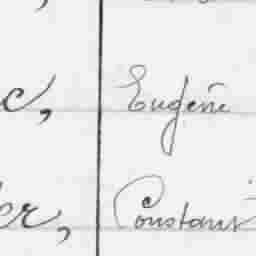 c, Eugène
er, Constant